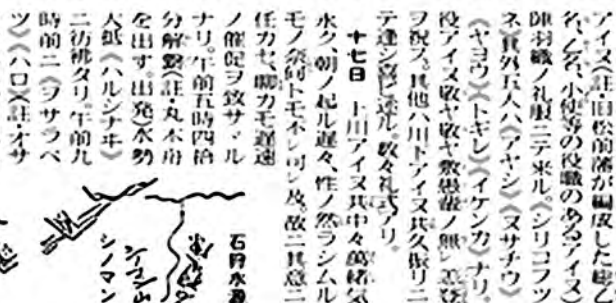 アイヌ(註・旧松前藩が編成した郷ノ
名、乙名、小使等の役職のあるアイヌ)
陣羽織ノ礼服ニテ来ル。《シリコフツ
ネ》其外五人ハ《アヤシ》《ヌサチウ》
《ヤヨウ》《トキレ》《イケンカ》ナリ
役アイヌ敬ヤ敬ヤ敷愚輩ノ無
ヲ祝ス。其他ハ川下アイヌ其久振リニ
テ逢シ喜ビ述ル。敬々礼式アリ。
十七日 上川アイヌ其中々萬緒気
永ク、朝ノ起ル遅々、性ノ然ラシムル
モノ奈何トモ不レ可レ及。故ニ其意ニ
任カセ、聊カモ遅速
ノ催促ヲ致サヾル
ナリ。午前五時四拾
分解纜(註・丸木舟
を出す。出発水勢
大抵《ハルシナヰ》
ニ彷彿タリ。午前九
時前ニ《ヲサラペ
ツ》《ハロ》(註・オサ
石狩水源
シノマン